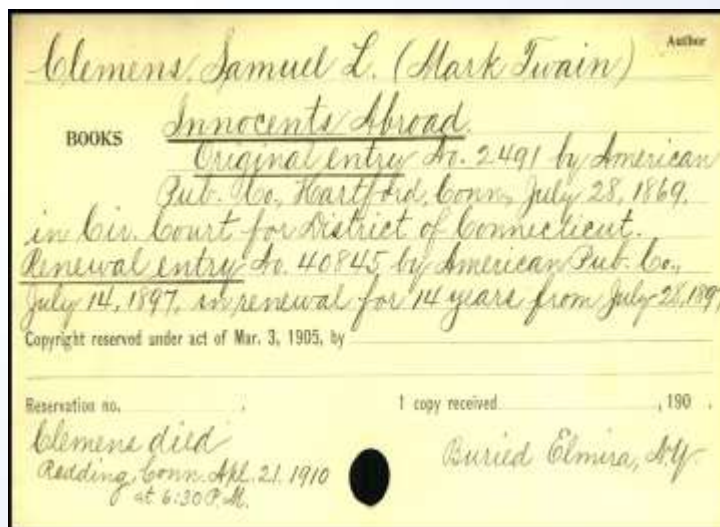 Author
Clemens, Samuel L. (Mark Twain)
BOOKS Innocents Abroad.
Original entry No. 2491 by American
Pub. Co., Hartford, Conn., July 28, 1869,
in Cir. Court for District of Connecticut.
Renewal entry No. 40845, by American Pub. Co.,
July 14, 1897, in renewal for 14 years from July 28, 1897
Copyright reserved under act of Mar. 3, 1905, by
Reservation no. . 1 copy received , 190 .
Clemens died
Redding, Conn. Apl. 21. 1910
at 6:30 P.M.
Buried Elmira, N.Y.